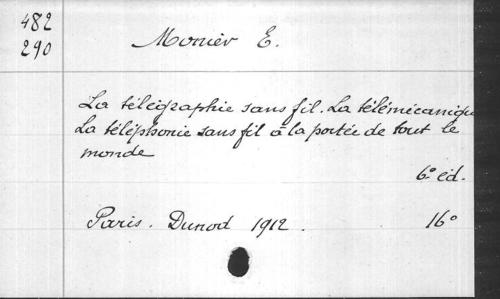 482
290
Monier E.
La télégraphie sans fil. La télémécanique
La téléphonie sans fil à la portée de tout le
monde
6° éd.
Paris. Dunod 1912.
16°